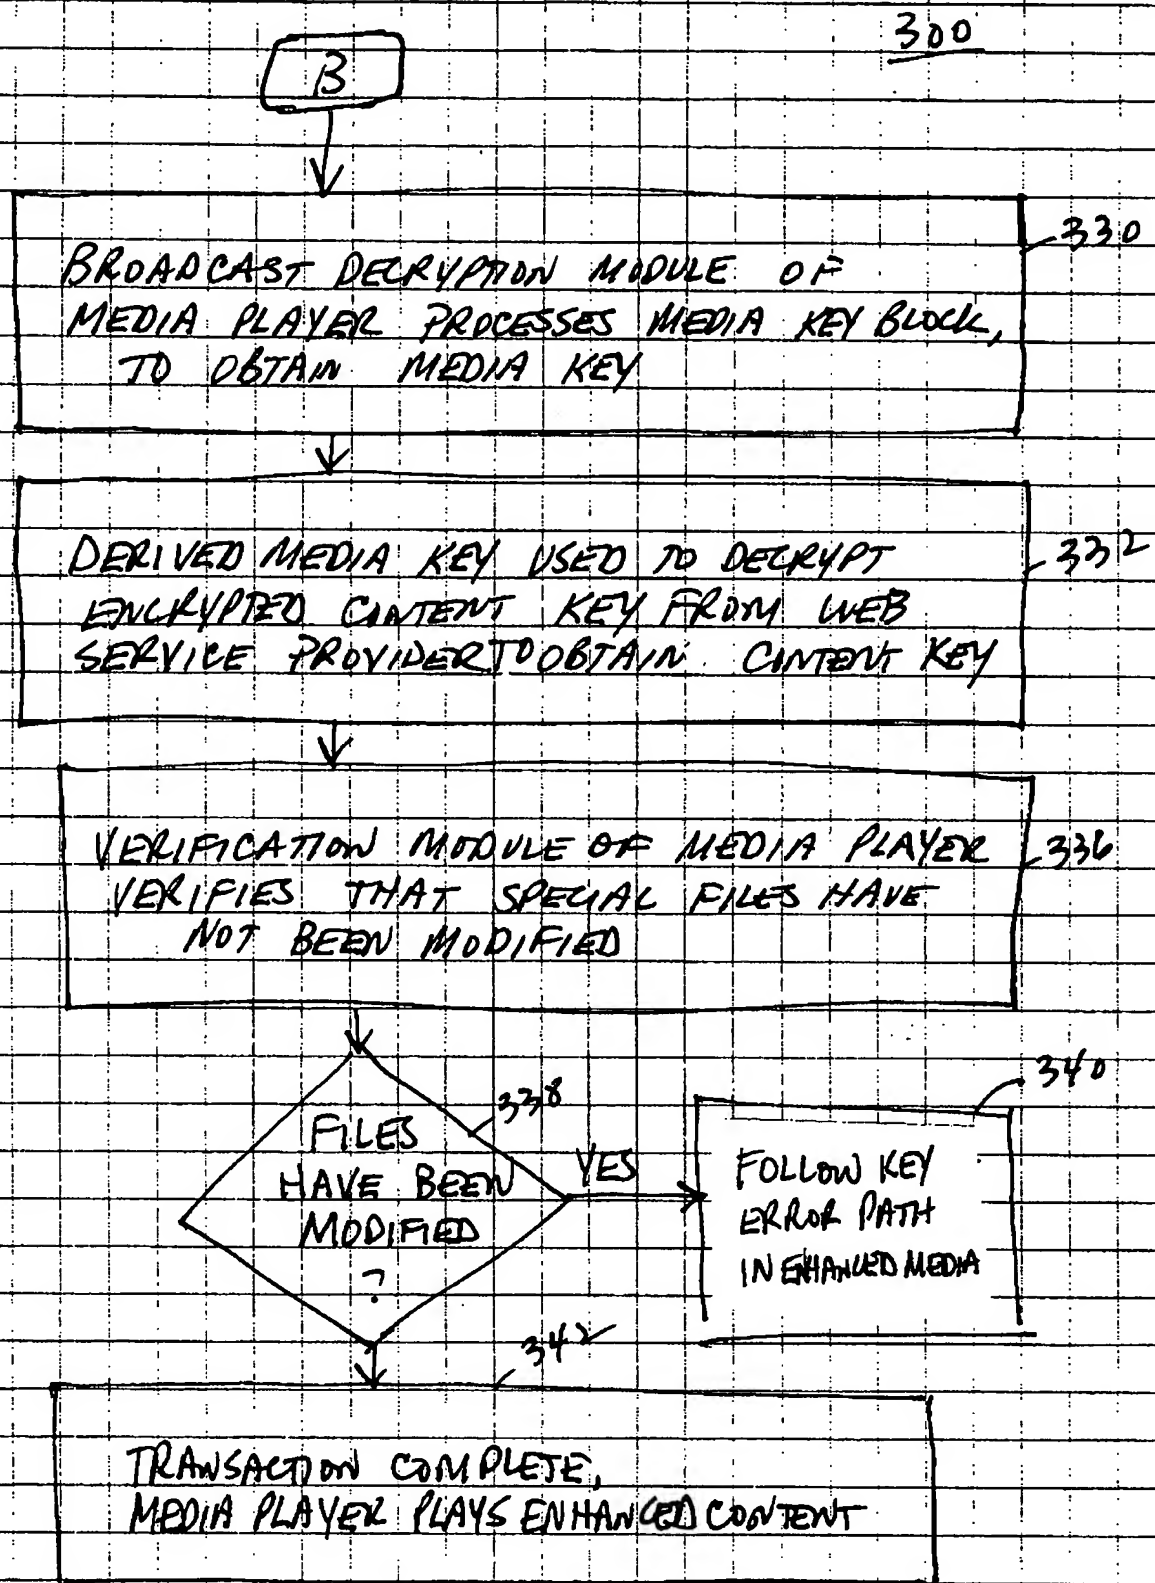 300
B
330
BROADCAST DECRYPTION MODULE OF
MEDIA PLAYER PROCESSES MEDIA KEY BLOCK,
TO OBTAIN MEDIA KEY
DERIVED MEDIA KEY USED TO DECRYPT
332
ENCRYPTED CONTENT KEY FROM WEB
SERVICE PROVIDER TO OBTAIN CONTENT KEY
VERIFICATION MODULE OF MEDIA PLAYER
336
VERIFIES THAT SPECIAL FILES HAVE
NOT BEEN MODIFIED
340
338
FILES
HAVE BEEN
MODIFIED
?
YES
FOLLOW KEY
ERROR PATH
IN ENHANCED MEDIA
342
TRANSACTION COMPLETE,
MEDIA PLAYER PLAYS ENHANCED CONTENT